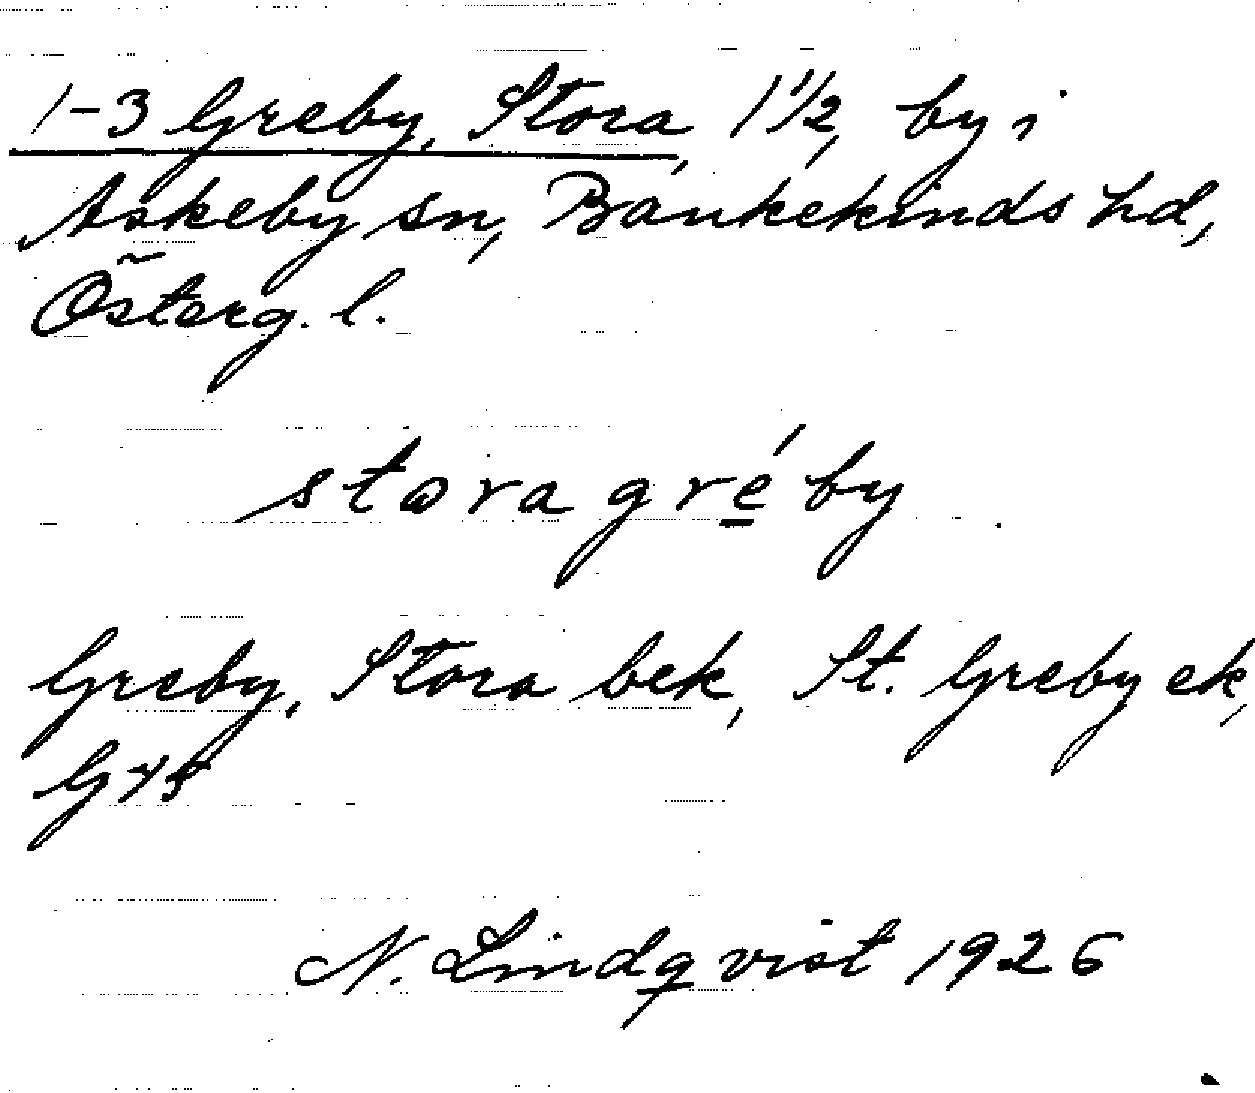 1-3 Greby, Stora, 1 1/2, by i
Askeby sn, Bankekinds hd,
Österg. l.
stora gréby
Greby, Stora bek, St. Greby ek,
G 45
N. Lindqvist 1926